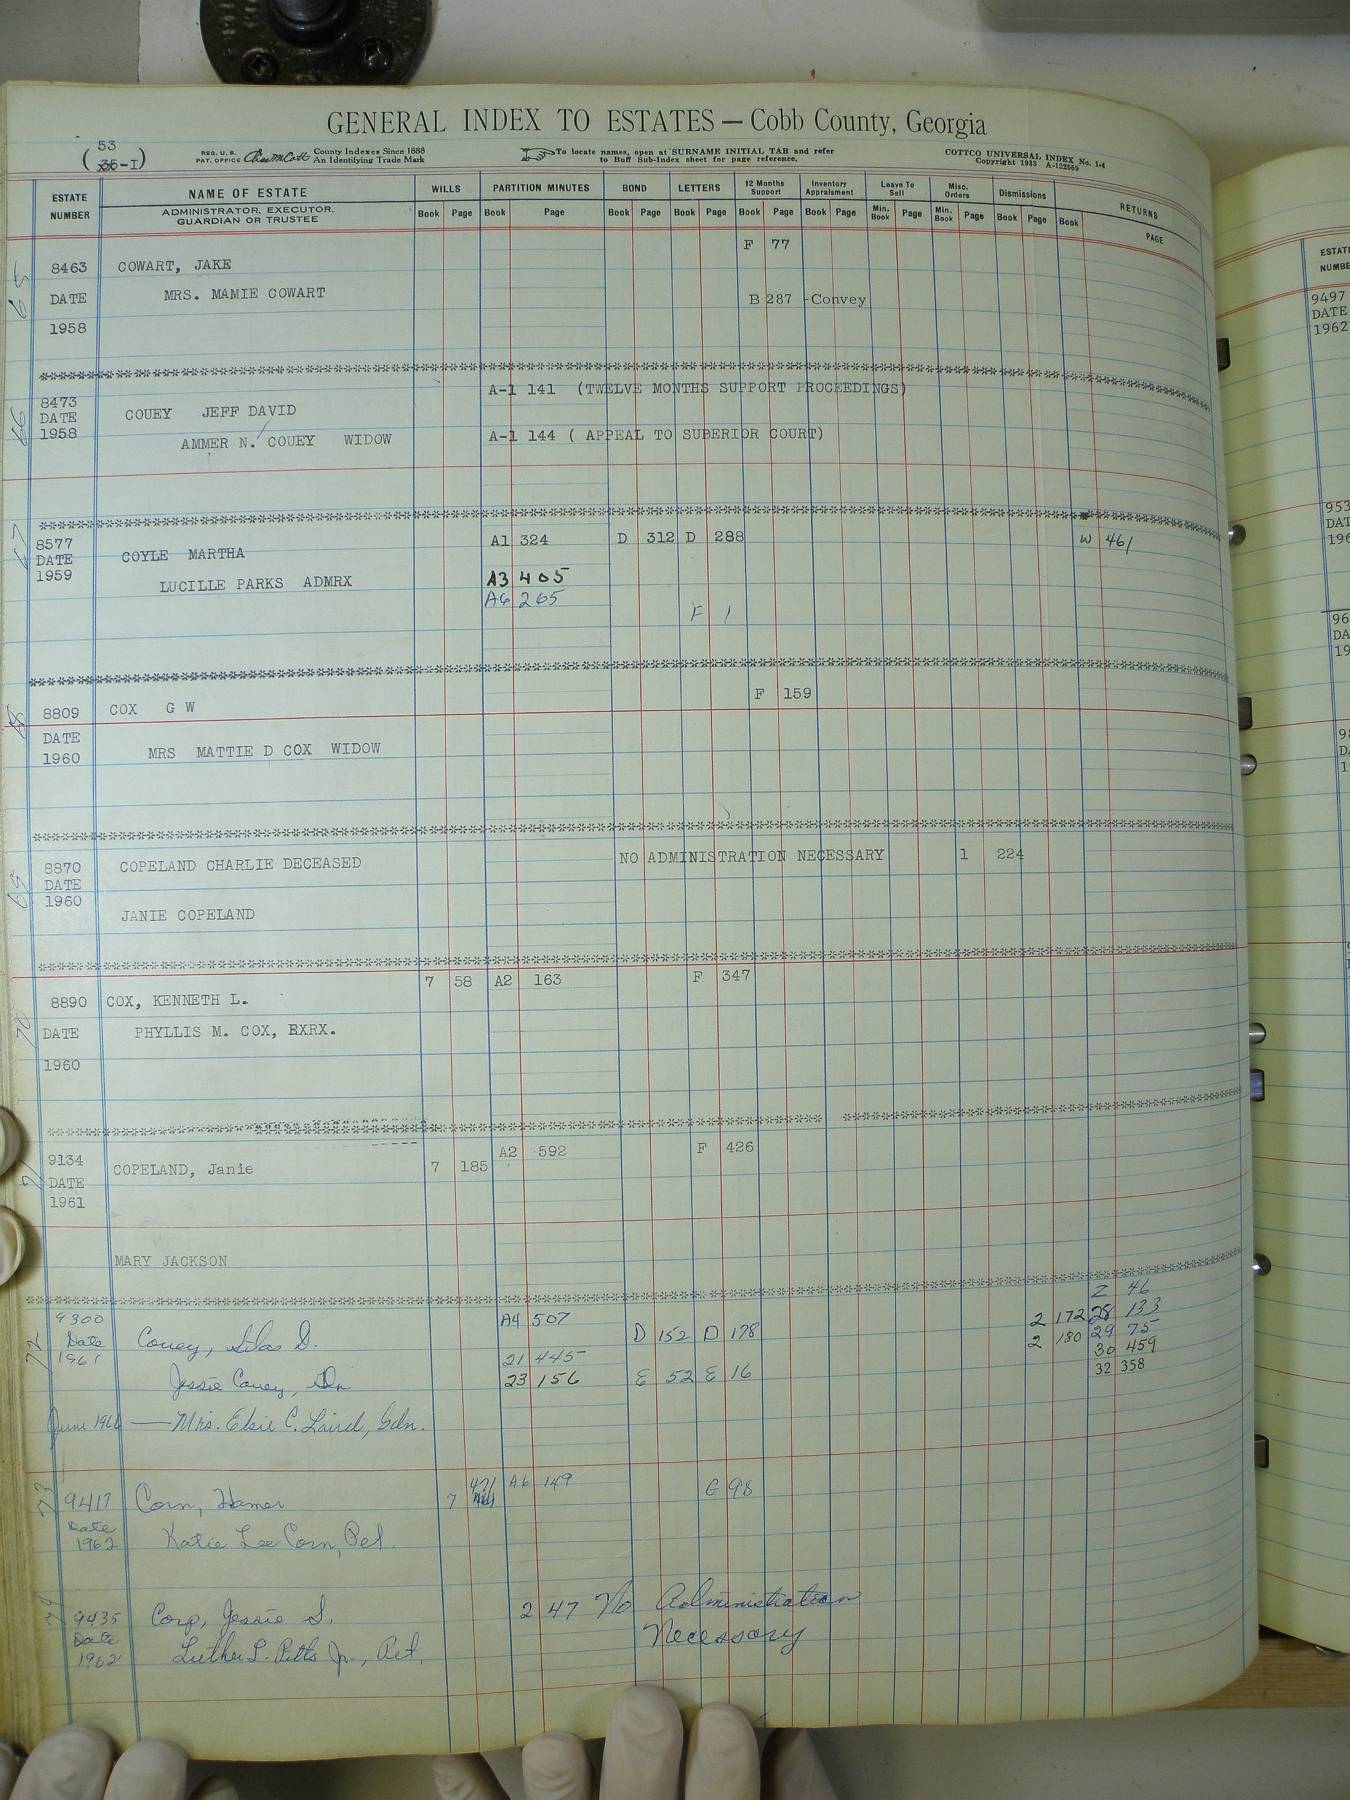 GENERAL INDEX TO ESTATES — Cobb County, Georgia
53
(36-I)
REG. U. S. PAT. OFFICE County Indexes Since 1888 An Identifying Trade Mark
To locate names, open at SURNAME INITIAL TAB and refer to Buff Sub-Index sheet for page reference.
COTTCO UNIVERSAL INDEX No. 1-4
Copyright 1933 A-122569
ESTATE NUMBER NAME OF ESTATE WILLS PARTITION MINUTES BOND LETTERS 12 Months Support Inventory Appraisment Leave To Sell Misc. Orders Dismissions RETURNS
ADMINISTRATOR, EXECUTOR, GUARDIAN OR TRUSTEE Book Page Book Page Book Page Book Page Book Page Book Page Min. Book Page Min. Book Page Book Page Book PAGE
F 77
65 8463 COWART, JAKE
DATE MRS. MAMIE COWART B 287 -Convey
1958
8473 A-1 141 (TWELVE MONTHS SUPPORT PROCEEDINGS)
66 DATE COUEY JEFF DAVID
1958 AMMER N. COUEY WIDOW A-1 144 ( APPEAL TO SUBERIOR COURT)
67 8577 A1 324 D 312 D 288 W 461
DATE COYLE MARTHA
1959 LUCILLE PARKS ADMRX A3 405
A6 265
F 1
F 159
68 8809 COX G W
DATE
1960 MRS MATTIE D COX WIDOW
69 8870 COPELAND CHARLIE DECEASED NO ADMINISTRATION NECESSARY 1 224
DATE
1960
JANIE COPELAND
7 58 A2 163 F 347
8890 COX, KENNETH L.
70 DATE PHYLLIS M. COX, EXRX.
1960
A2 592 F 426
9134 COPELAND, Janie 7 185
71 DATE
1961
MARY JACKSON
Z 46
9300 A4 507 2 172 28 133
72 Date Couey, Silas D. D 152 D 178 2 180 29 75
1961 21 445 30 459
Jessie Couey, Gdn 23 156 E 52 E 16 32 358
June 1966 — Mrs. Elsie C. Laird, Gdn.
73 9417 Corn, Homer 7 421 A6 149 G 98
Date
1962 Katie Lee Corn, Pet.
74 9435 Corp, Jessie S. 2 47 No Administration
Date Necessary
1962 Luther L. Pitts Jr., Pet.
ESTATE NUMBE
9497
DATE
1962
953
DAT
196
96
DA
19
98
D
1